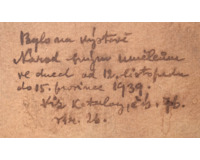 Bylo na výstavě
Národ svým umělcům
ve dnech od 12. listopadu
do 15. prosince 1939.
Viz Katalog, č. 76.
str. 26.